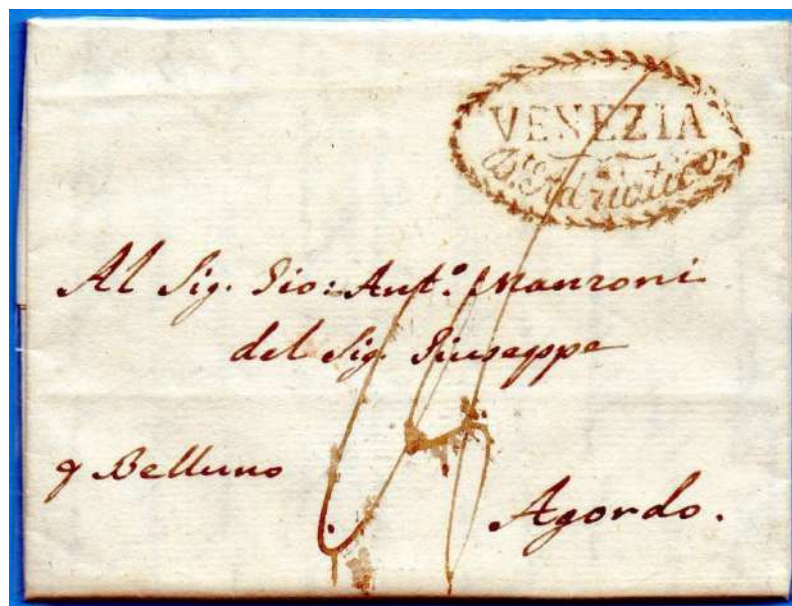 VENEZIA
Adriatico.
Al Sig. Gio: Ant.º Manzoni
del Sig. Giuseppe
Belluno
Agordo.